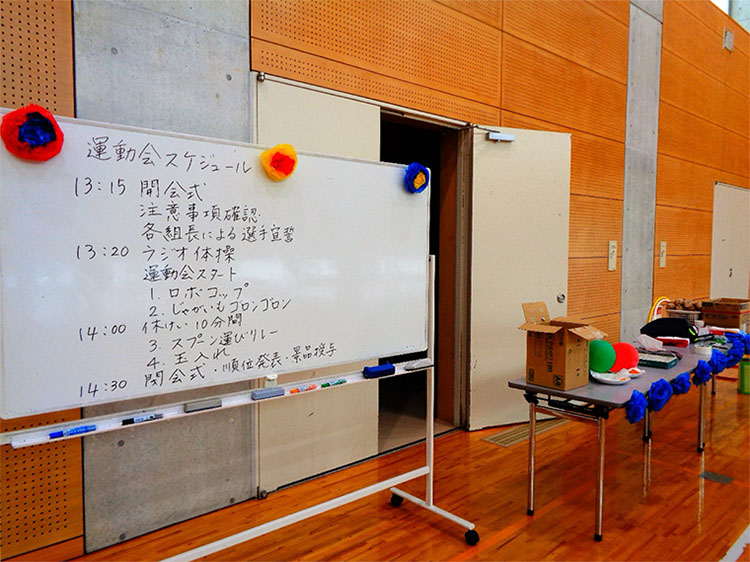 運動会スケジュール
13:15 開会式
注意事項確認
各組長による選手宣誓
13:20 ラジオ体操
運動会スタート
1. ロボコップ
2. じゃがいもゴロンゴロン
14:00 休けい10分間
3. スプーン運びリレー
4. 玉入れ
14:30 閉会式・順位発表・景品授与